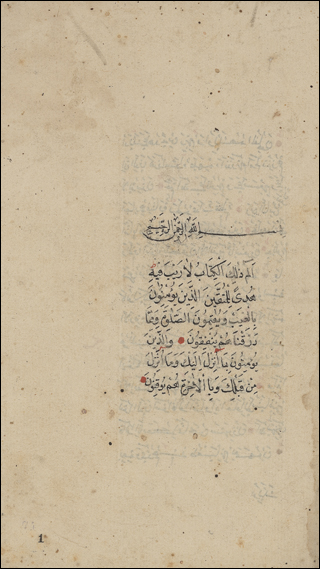 بسم الله الرحمن الرحيم
الم ذلك الكتاب لا ريب فيه
هدى للمتقين الذين يؤمنون
بالغيب ويقيمون الصلوة ومما
رزقناهم ينفقون والذين
يؤمنون بما أنزل إليك وما أنزل
من قبلك وبالآخرة هم يوقنون
1